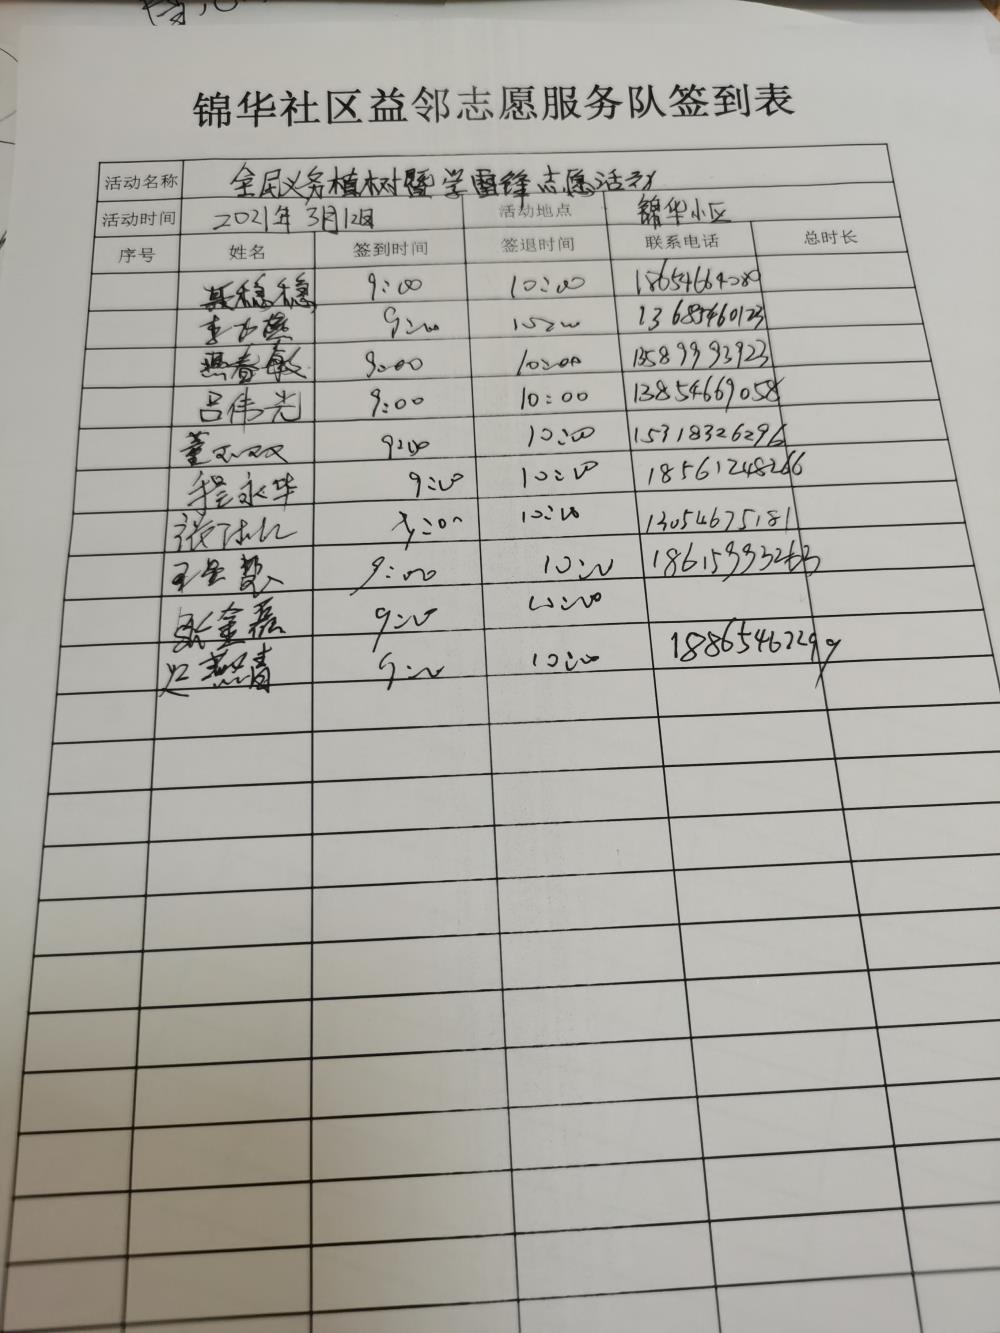 锦华社区益邻志愿服务队签到表
活动名称 全民义务植树暨学雷锋志愿活动
活动时间 2021年3月12日 活动地点 锦华小区
序号 姓名 签到时间 签退时间 联系电话 总时长
稳稳 9:00 10:00 18654664080
李 9:00 10:00 13685460123
燕春敏 9:00 10:00 13589993923
吕伟光 9:00 10:00 13854669058
董双双 9:00 10:00 15318326296
程永华 9:00 10:00 18561248266
张 9:00 10:00 13054675181
王 9:00 10:00 18615993263
张金磊 9:00 10:00
赵燕青 9:00 10:00 18865462299